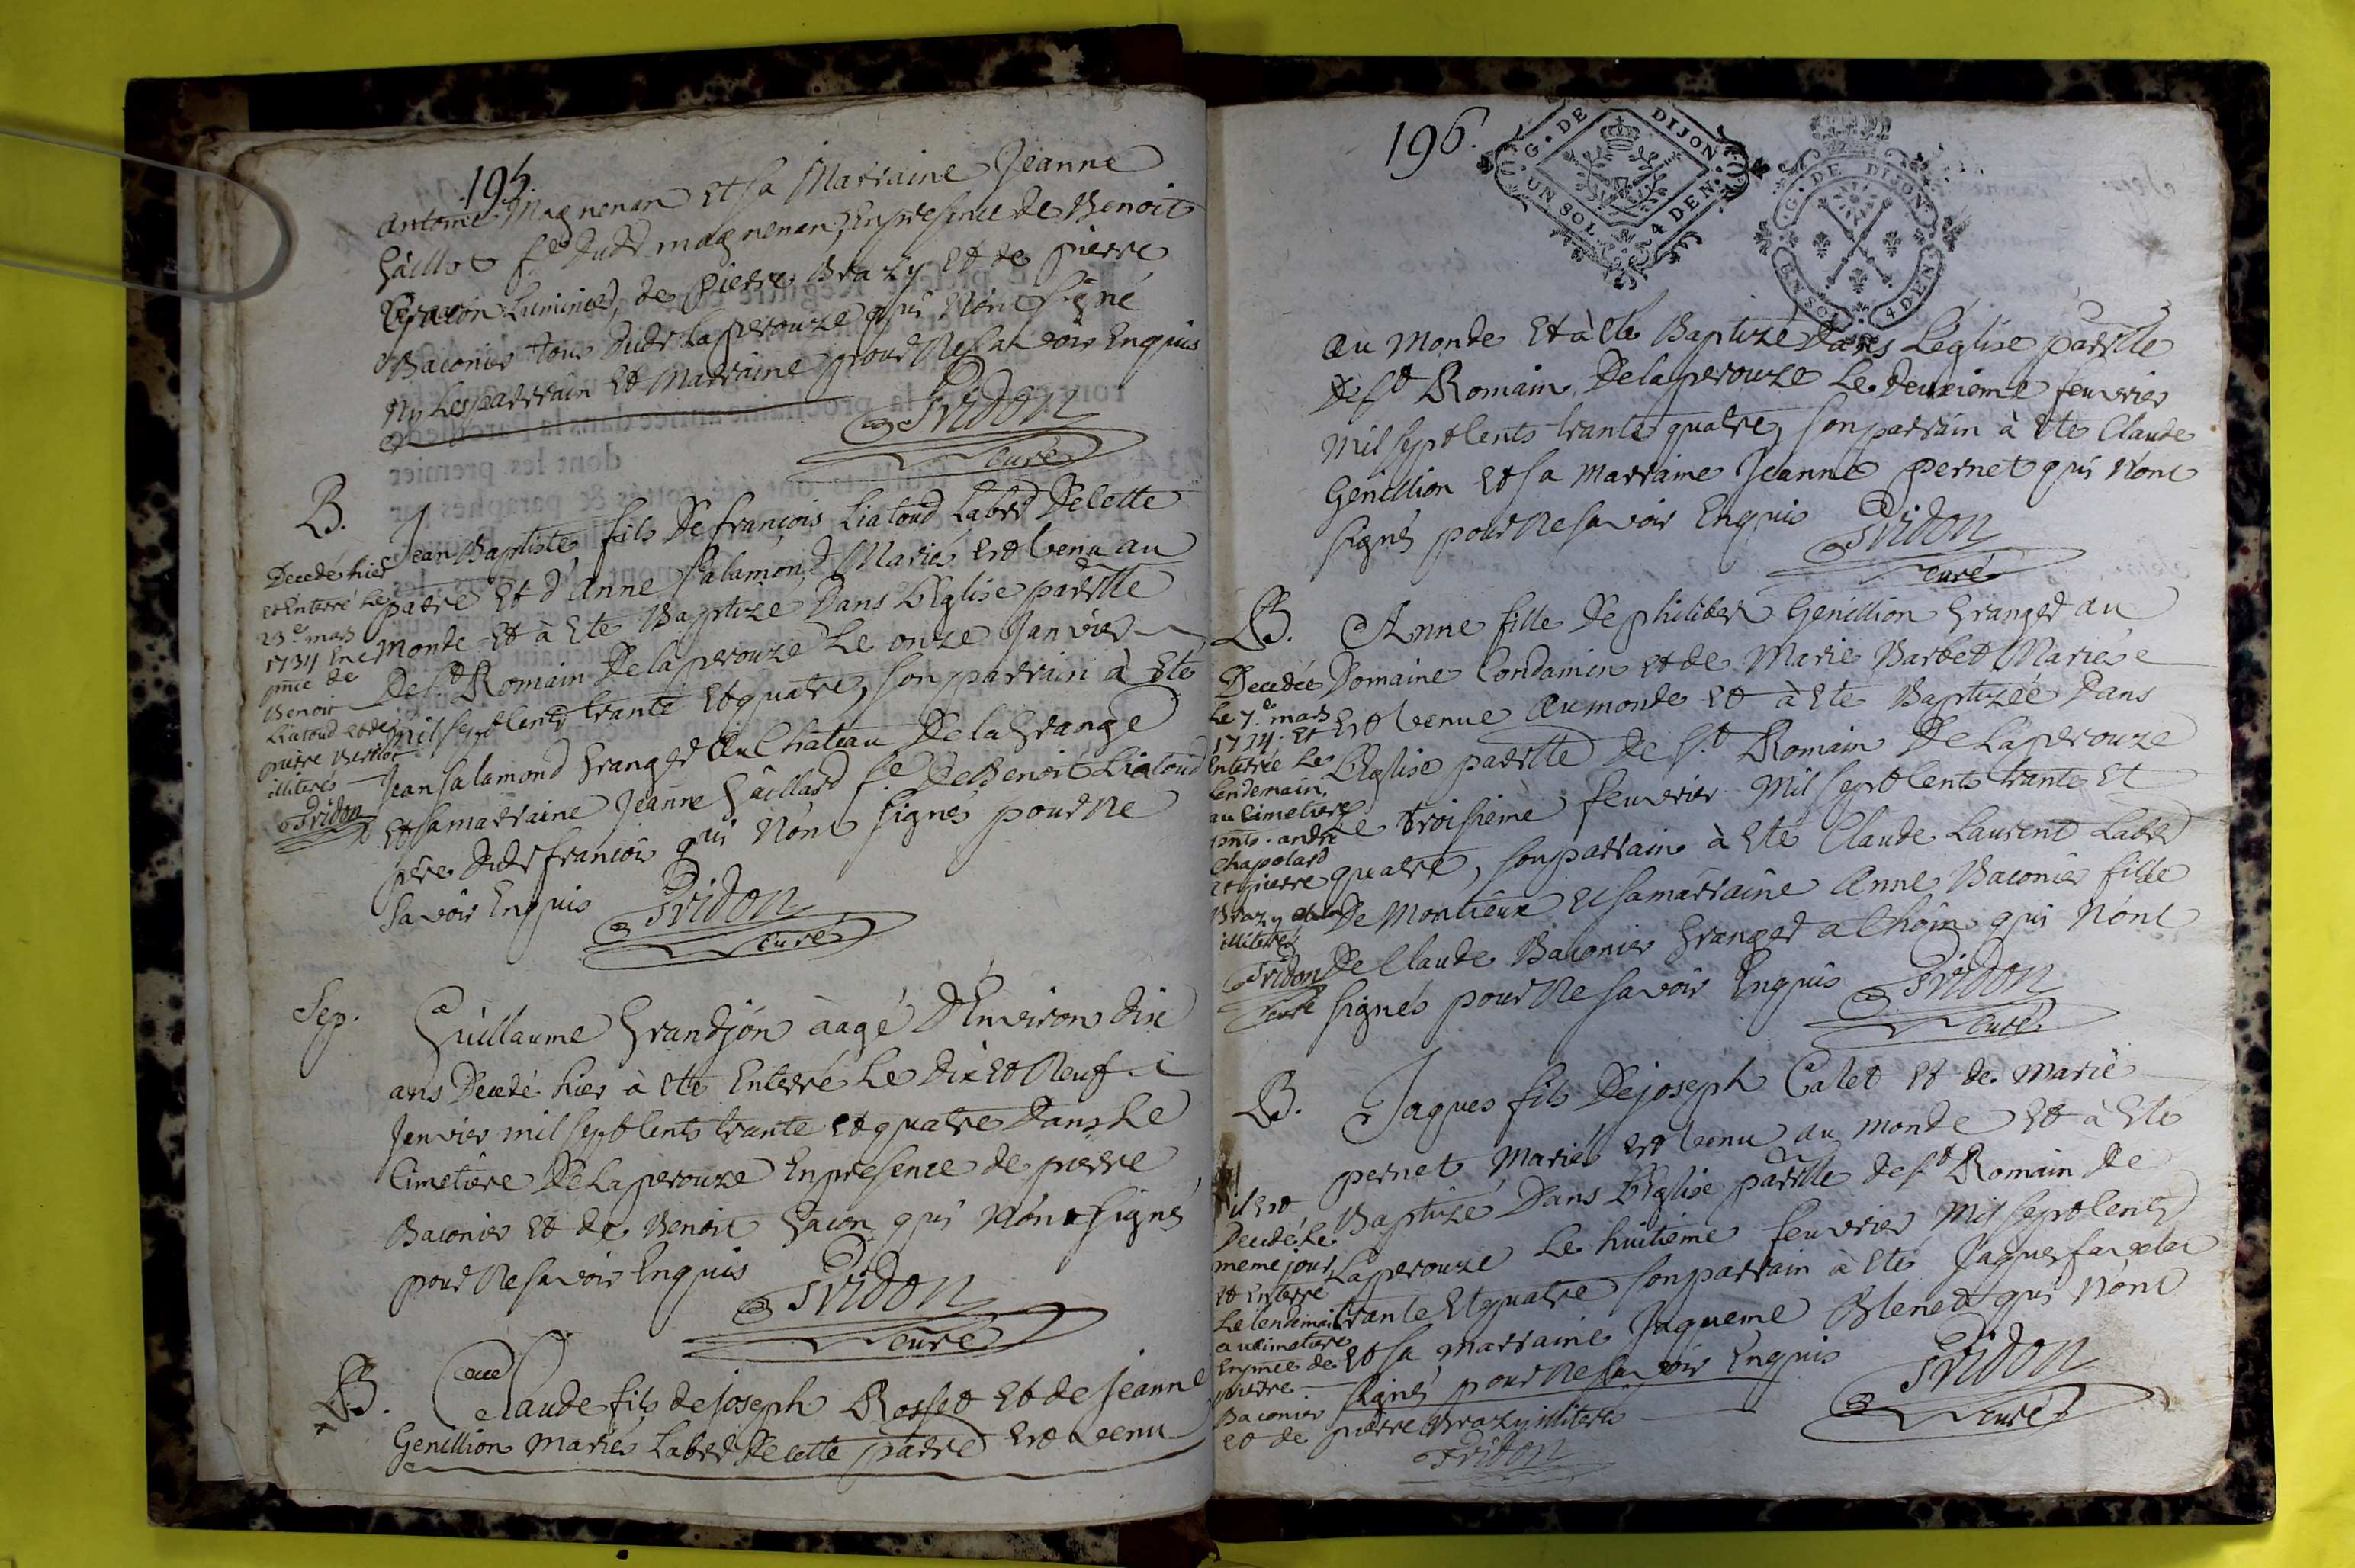 195.
antoine Magnenan et sa Marraine Jeanne
Gaillot fe dudt magnenan, En presence de Benoit
Luminier, de pierre Brazy et de pierre
Baconier tous dudt Laperouze qui n'ont signé
ny Les parrain et Marraine pour ne savoir Enquis
Tridon
curé
B.
Jean Baptiste fils De françois Liatoud Labr De cette
parre et d'Anne Salamond Mariés est venu au
monde et à été Baptizé Dans L'Eglise parslle
De St Romain De Laperouze Le onze Janvier
mil sept cents trante et quatre, son parrain à été
Jean Salamond Granger au Château De la Grange
et sa marraine Jeanne Gaillard fe De Benoit Liatoud
père dudt françois qui n'ont signés pour ne
savoir Enquis
Tridon
curé
Decedé hier
et Enterré Le
23e mars
1734 En
pnce de
Benoit
Liatoud et de
pierre
illiterés
Tridon
Sep.
Guillaume Grandjon aagé D'Environ dix
ans Decedé hier à été Enterré Le dix et Neuf
Janvier mil sept cents trante et quatre Dans Le
Cimetiere De Laperouze En presence de pierre
Baconier et de Benoit Gacon qui n'ont signé
pour ne savoir Enquis
Tridon
curé
B.
Claude fils de joseph Rosset et de Jeanne
Genillion Mariés Labr De cette parre est venu
196.
G. DE DIJON
UN SOL 4 DEN.
G. DE DIJON
UN SOL 4 DEN.
au Monde et à été Baptizé Dans L'église parslle
De St Romain De Laperouze Le deuxieme feuvrier
mil sept cents trante quatre, son parrain à été Claude
Genillion et sa Marraine Jeanne pernet qui n'ont
signés pour ne savoir Enquis
Tridon
curé
B.
Anne fille De philiber Genillion Granger au
Domaine Condamin et de Marie Barbet Mariés
est venue au monde et à été Baptizée Dans
L'Eglise parslle De St Romain De Laperouze
Le troisieme feuvrier Mil sept cents trante et
quatre, son parrain à été Claude Laurent Labr
De Montieux et sa marraine Anne Baconier fille
De Claude Baconier Granger a Choin qui n'ont
signés pour ne savoir Enquis
Tridon
curé
Decedée
Le 7e mars
1734. et
Enterrée Le
Lendemain
au Cimetiere
pnts. andré
Chapolard
et pierre
Brazy
illiterés
Tridon
curé
B.
Jaques fils De joseph Calet et de Marie
pernet Mariés est venu au monde et à été
Baptizé Dans L'Eglise parslle de St Romain De
Laperouze Le huitieme feuvrier Mil sept cents
trante et quatre son parrain à été Jaques
et sa marraine Jaqueme Blenet qui n'ont
signés pour ne savoir Enquis
Tridon
curé
il est
Decedé Le
meme jour
et Enterré
Le Lendemain
au cimetiere
En pnce de
pierre
Baconier
et de pierre Brazy illiterés
Tridon